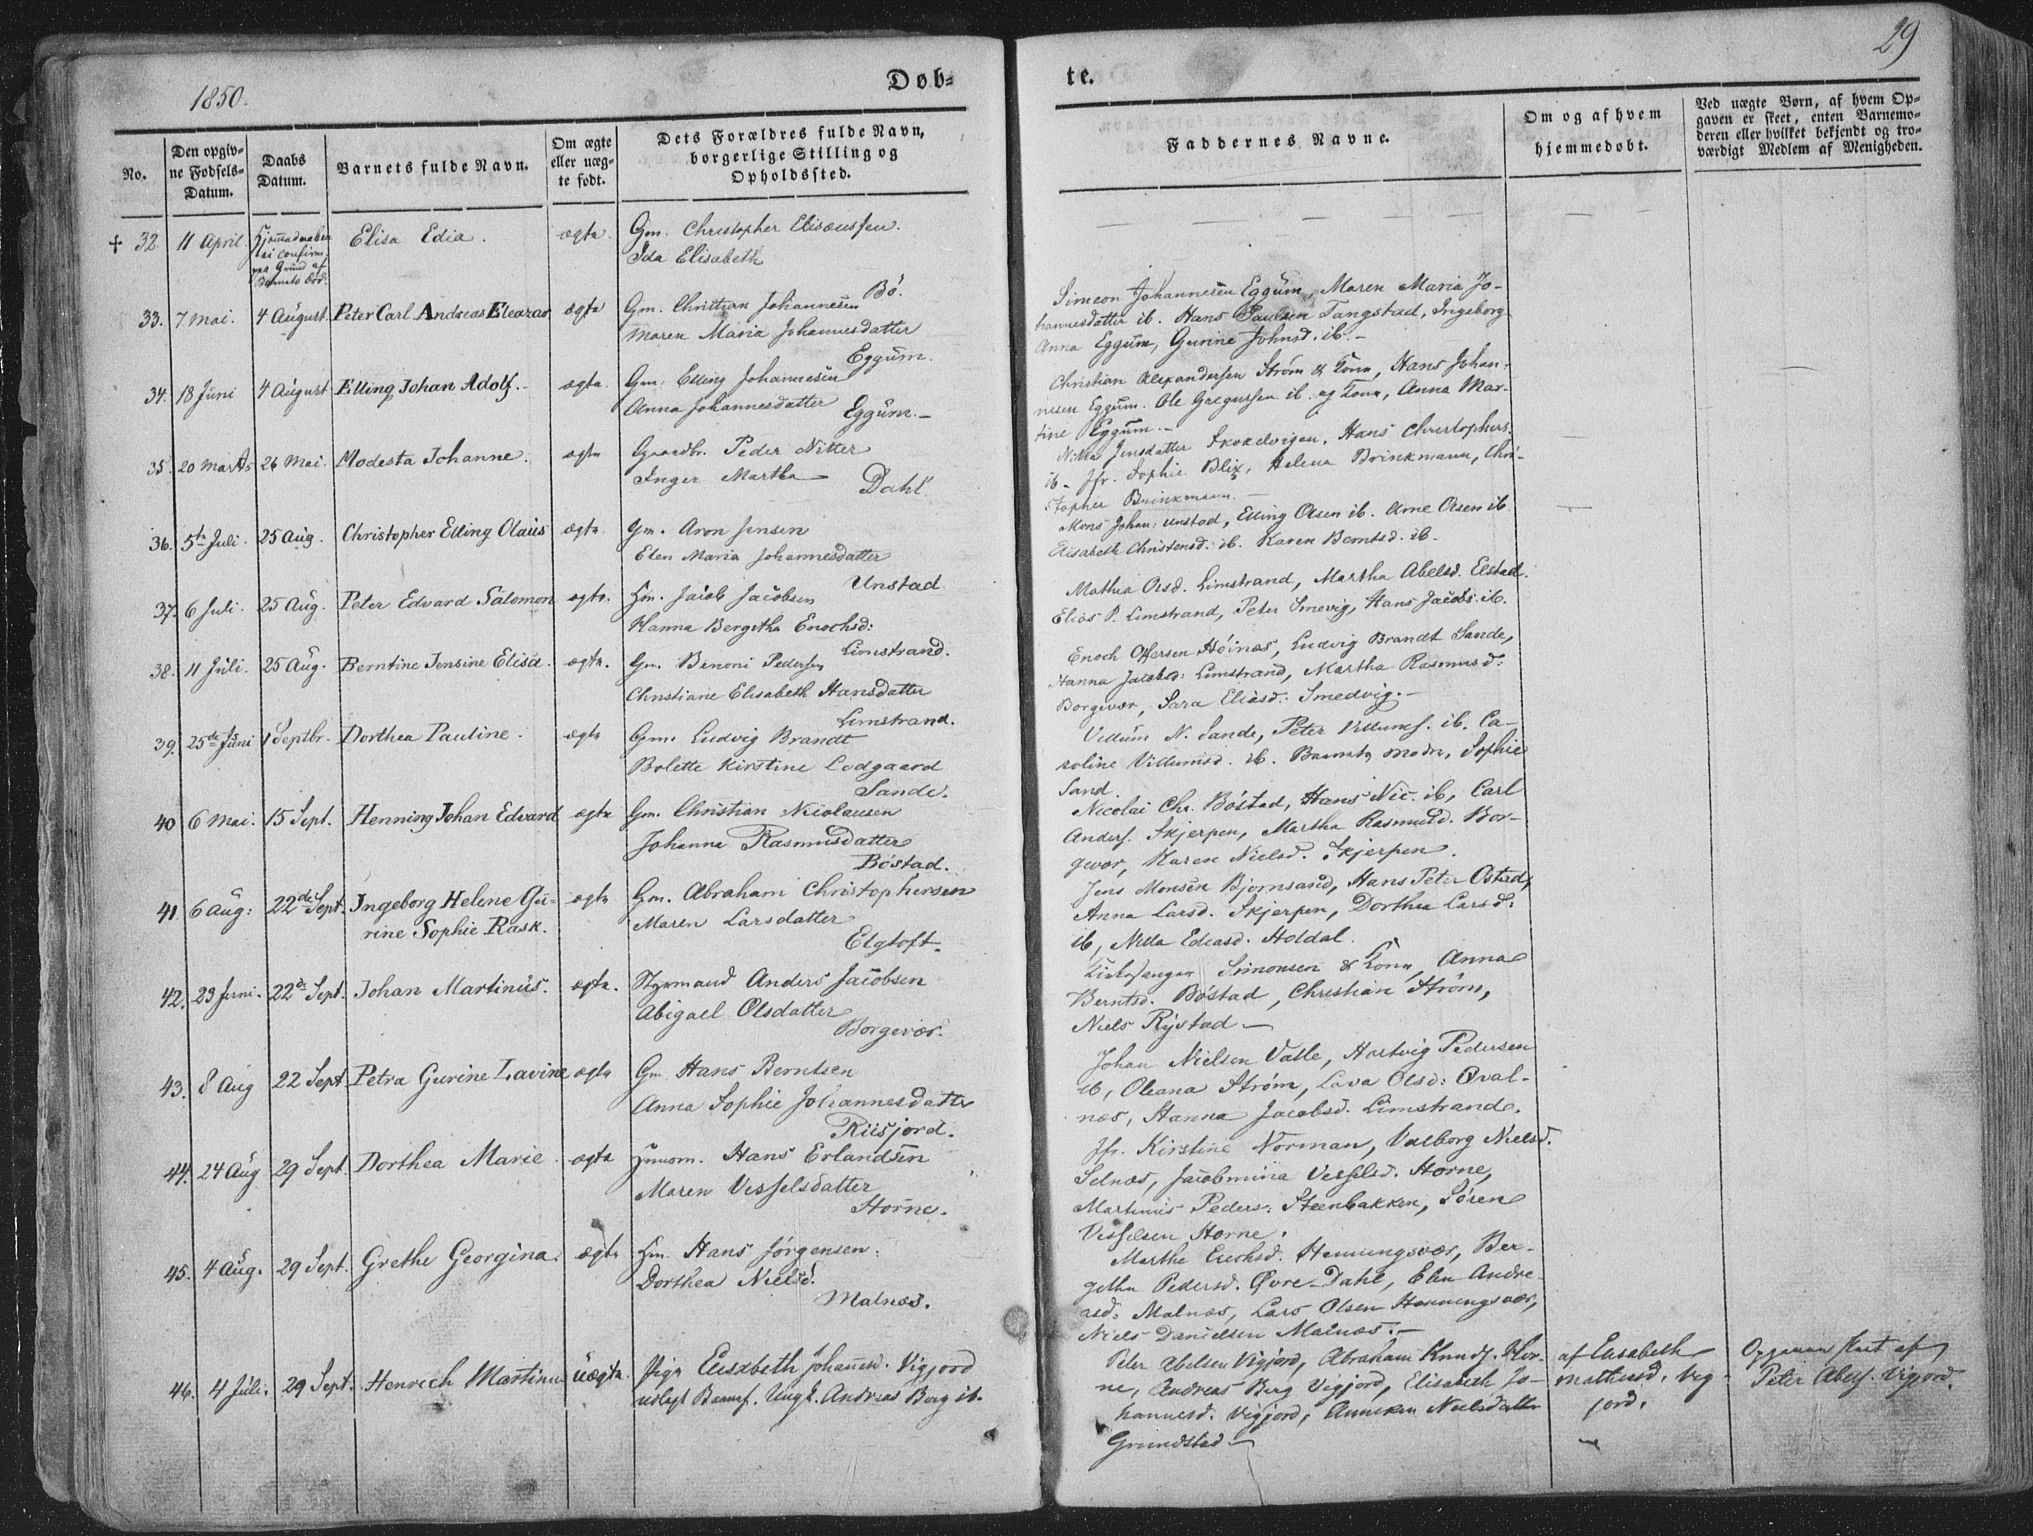 1850.
Døb-
No.
Den opgiv-
ne Fødsels-
Datum.
Daabs
Datum.
Barnets fulde Navn.
Om ægte
eller uæg-
te født.
Dets Forældres fulde Navn,
borgerlige Stilling og
Opholdssted.
† 32. 11 April. Elisa Edia. ægte. Gm. Christopher Elisæussen.
Ida Elisabeth
Bø.
33. 7 Mai. 4 August. Peter Carl Andreas Eleazar ægte Gm. Christian Johannesen
Maren Maria Johannesdatter
Eggum.
34. 18 Juni 4 August Elling Johan Adolf. ægte. Gm. Elling Johannesen
Anna Johannesdatter
Eggum.
35. 20 Marts 26 Mai. Modesta Johanne. ægte Gaardbr. Peder Nitter
Inger Martha
Dahl.
36. 5te Juli. 25 Aug. Christopher Elling Olaus ægte. Gm. Aron Jensen
Elen Maria Johannesdatter
Unstad
37. 6 Juli. 25 Aug. Peter Edvard Salomon ægte. Hm. Jacob Jacobsen
Hanna Bergitha Enochsd:
Limstrand.
38. 11 Juli. 25 Aug. Berntine Jensine Elisa. ægte. Gm. Benoni Pedersen
Christiane Elisabeth Hansdatter
Limstrand.
39. 25de Juni 1 Septbr. Dorthea Pauline. ægte Gm. Ludvig Brandt
Bolette Kirstine Lodgaard
Sande.
40 6 Mai. 15 Sept. Henning Johan Edvard ægte Gm. Christian Nicolausen
Johanna Rasmusdatter
Bøstad.
41. 6 Aug: 22de Sept. Ingeborg Helene Gu- ægte Gm. Abraham Christophersen
rine Sophie Rask. Maren Larsdatter
Elgtoft.
42. 23 Juni. 22de Sept. Johan Martinus. ægte. Styrmand Anders Jacobsen
Abigael Olsdatter
Borgevær.
43. 8 Aug 22 Sept Petra Gurine Lavine ægte Gm Hans Berntsen
Anna Sophie Johannesdatter
Riisjord.
44. 24 Aug 29 Sept. Dorthea Marie ægte Huusm. Hans Erlandsen
Maren Vesselsdatter
Horne.
45. 4 Aug. 29 Sept. Grethe Georgina. ægte Hm. Hans Jørgensen.
Dorthea Nielsd.
Malnæs.
46. 4 Juli. 29 Sept. Henrich Martinu uægte. Pige Elisabeth Johannesd. Vigjord
udlagt Barnef. Ungk. Andreas Borg ib.
29
te.
Faddernes Navne.
Om og af hvem
hjemmedøbt.
Ved uægte Børn, af hvem Op-
gaven er skeet, enten Barnemo-
deren eller hvilket bekjendt og tro-
værdigt Medlem af Menigheden.
Simeon Johannesen Eggum, Maren Maria Jo-
hannesdatter ib. Hans Paulsen Tangstad, Ingeborg
Anna Eggum, Gurine Johnsd. ib.
Christian Alexandersen Strøm & Kone, Hans Johan-
nesen Eggum. Ole Gregussen ib. og Kone, Anna Mar-
tine Eggum.
Jensdatter Hans Christophers.
ib. Jfr. Sophie Blix, Helena Brinkmann, Chri-
stopher Brinkmann.
Mons Johan: Unstad, Elling Olsen ib. Arne Olsen ib
Elisabeth Christensd. ib. Karen Berntsd. ib.
Mathea Olsd. Limstrand, Martha Abelsd. Elstad.
Elias P. Limstrand, Peter Smevig, Hans Jacobs. ib.
Enoch Høinæs, Ludvig Brandt Sande,
Hanna Jacobsd: Limstrand, Martha Rasmusd:
Borgevær, Sara Eliasd: Smedvig.
Villum N. Sande, Peter Villums. ib. Ca-
roline Villumsd. ib. Barnets Moder, Sophie
Sand.
Nicolai Chr. Bøstad, Hans Nic. ib, Carl
Anders. Skjerpen, Martha Rasmusd. Bor-
gevær, Karen Nielsd. Skjerpen.
Jens Monsen Bjørnsand, Hans Peter Ostad,
Anna Larsd. Skjerpen, Dorthea Larsd:
ib, Holdal.
Kirkesanger Simonsen & Kone, Anna
Berntsd. Bøstad, Christian Strøm,
Niels Rystad
Johan Nielsen Valle, Hartvig Pedersen
ib, Oleana Strøm, Lava Olsd: Qval-
næs, Hanna Jacobsd. Limstrand.
Jfr. Kirstine Norman, Valborg Nielsd.
Selnæs, Jacobmina Vesselsd. Horne,
Martinus Peders: Steenbakken, Søren
Vesselsen Horne.
Marthe Henningsvær, Ber-
githa Pedersd. Øvre-Dahl, Elen Andre-
asd: Malnæs, Lars Olsen Henningsvær,
Niels Danielsen Malnæs.
Peter Abelsen Vigjord, Abraham Knuds. Hor- af Elisabeth Opgaven skeet af
ne, Andreas Berg Vigjord, Elisabeth Jo- Vig- Peter Abels. Vigjord.
hannesd. Vigjord, Anneken Nielsdatter jord.
Grundstad